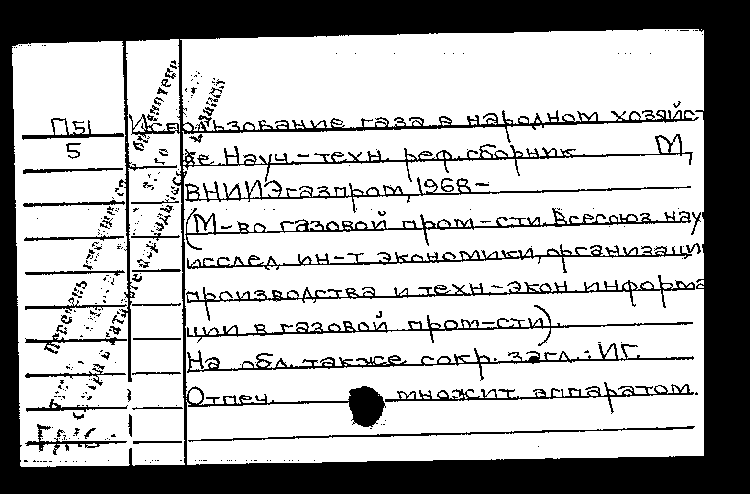 П51
5
Использование газа в народном хозяйст
ве. Науч.-техн. реф. сборник. М.,
ВНИИЭгазпром, 1968-
(М-во газовой пром-сти. Всесоюз. науч
исслед. ин-т экономики, организации
производства и техн.-экон. информа
ции в газовой пром-сти).
На обл. также сокр. загл.: ИГ.
Отпеч. множит. аппаратом.
Перечень имеющихся в библиотеке
смотри в каталоге периодических изданий